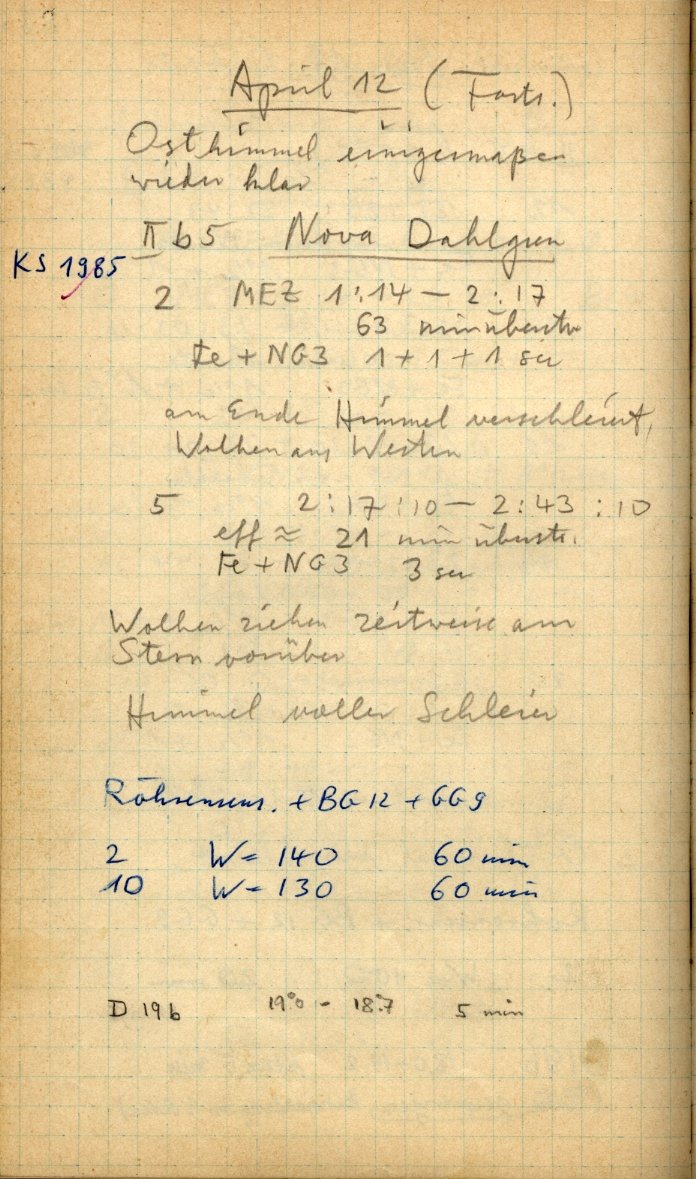 April 12 (Forts.)
Osthimmel einigermaßen
wieder klar
II b 5 Nova Dahlgren
KS 1985
2 MEZ 1:14 — 2:17
63 min überstr.
Fe + NG3 1 + 1 + 1 sec
am Ende Himmel verschleiert,
Wolken aus Westen
5 2:17:10 — 2:43:10
eff ≈ 21 min überstr.
Fe + NG3 3 sec
Wolken ziehen zeitweise am
Stern vorüber
Himmel voller Schleier
Röhrensens. + BG 12 + GG 9
2 W = 140 60 min
10 W = 130 60 min
D 19b 19°.0 - 18°.7 5 min